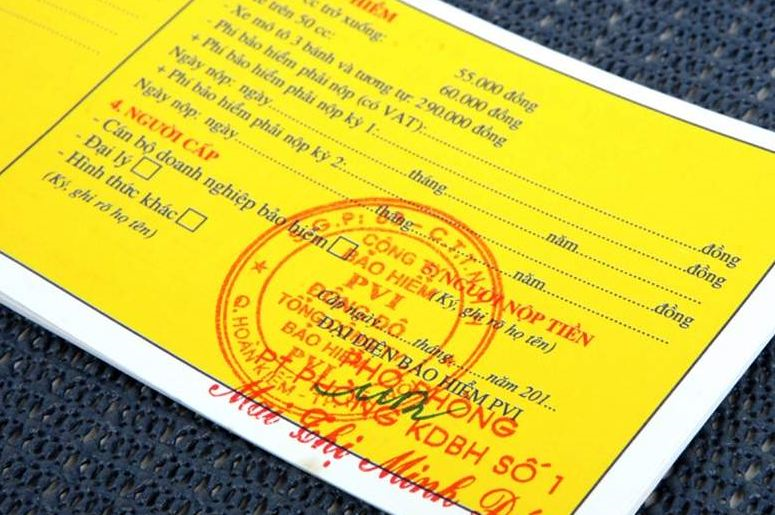 HIỂM
cc trở xuống: 55.000 đồng
trên 50 cc: 60.000 đồng
- Xe mô tô 3 bánh và tương tự: 290.000 đồng
- Phí bảo hiểm phải nộp (có VAT):........đồng
+ Phí bảo hiểm phải nộp kỳ 1:........đồng
Ngày nộp: ngày........tháng........năm........
+ Phí bảo hiểm phải nộp kỳ 2........đồng
Ngày nộp: ngày........tháng........năm........
4. NGƯỜI CẤP
- Cán bộ doanh nghiệp bảo hiểm □
- Đại lý □
- Hình thức khác □
(Ký, ghi rõ họ tên)
NGƯỜI NỘP TIỀN
(Ký, ghi rõ họ tên)
Cấp ngày........tháng........năm 201...
ĐẠI DIỆN BẢO HIỂM PVI
CÔNG TY
BẢO HIỂM
PVI
ĐÔNG ĐÔ
TỔNG
BẢO HIỂM
PVI
Q.HOÀN KIẾM
PHÓ PHÒNG
PT PHÒNG KDBH SỐ 1
Mai Thị Minh